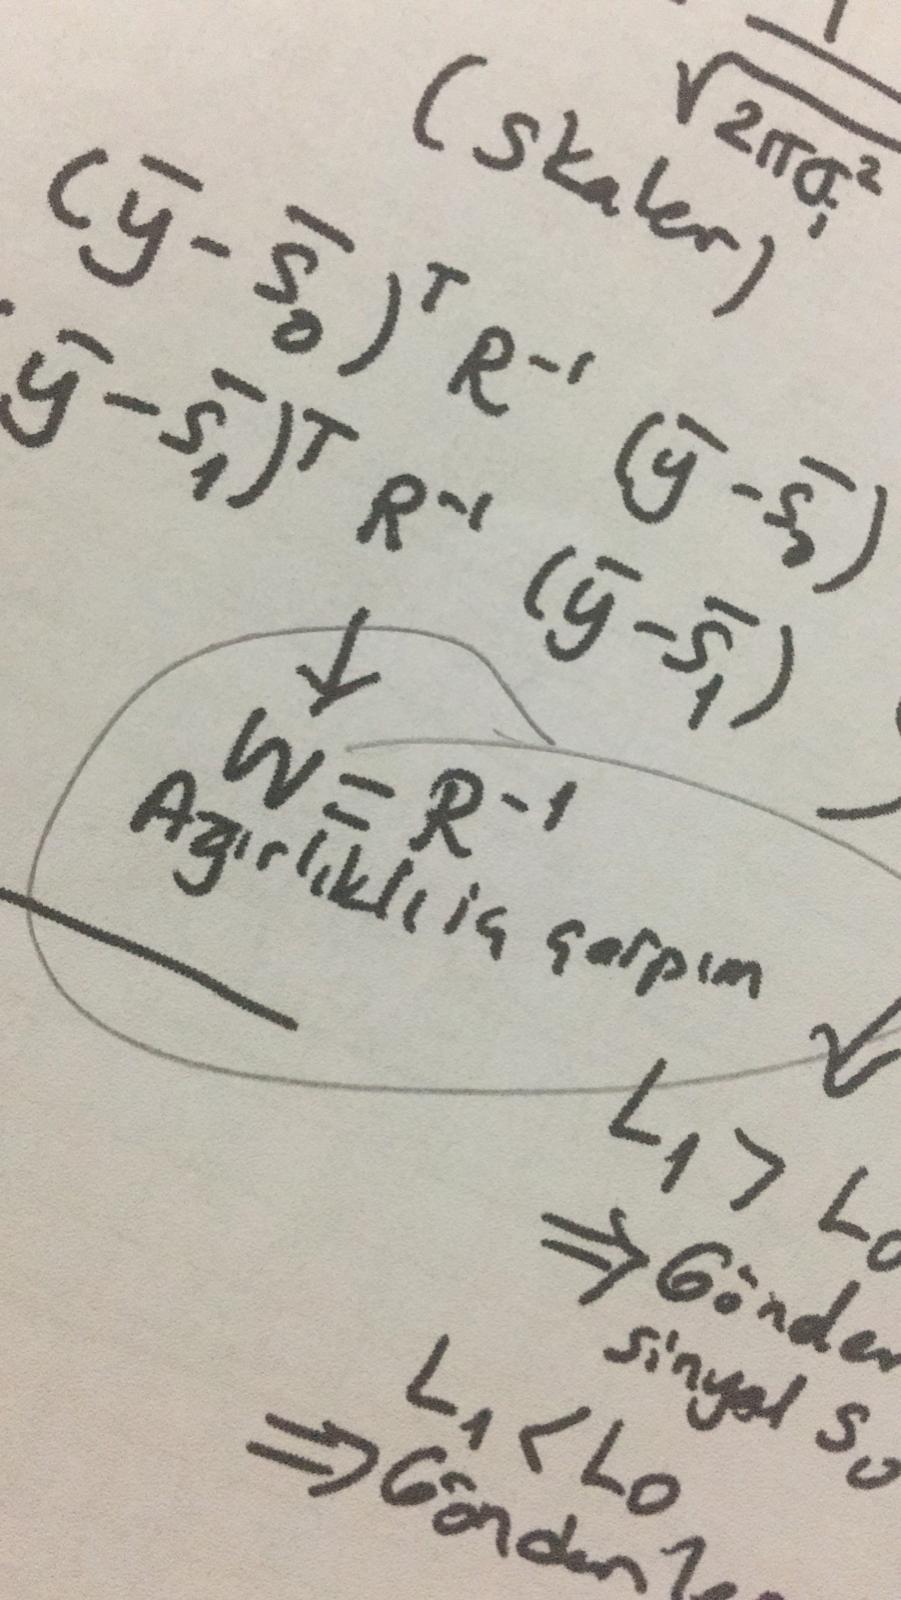 1
√2πσ₁²
(skaler)
(ȳ - s̄₀)ᵀ R⁻¹ (ȳ - s̄₀)
ȳ - s̄₁)ᵀ R⁻¹ (ȳ - s̄₁)
↓
W = R⁻¹
Ağırlıklı iç çarpım
L₁ > L₀
⇒ Gönder
sinyal s₀
L₁ < L₀
⇒ Gönder